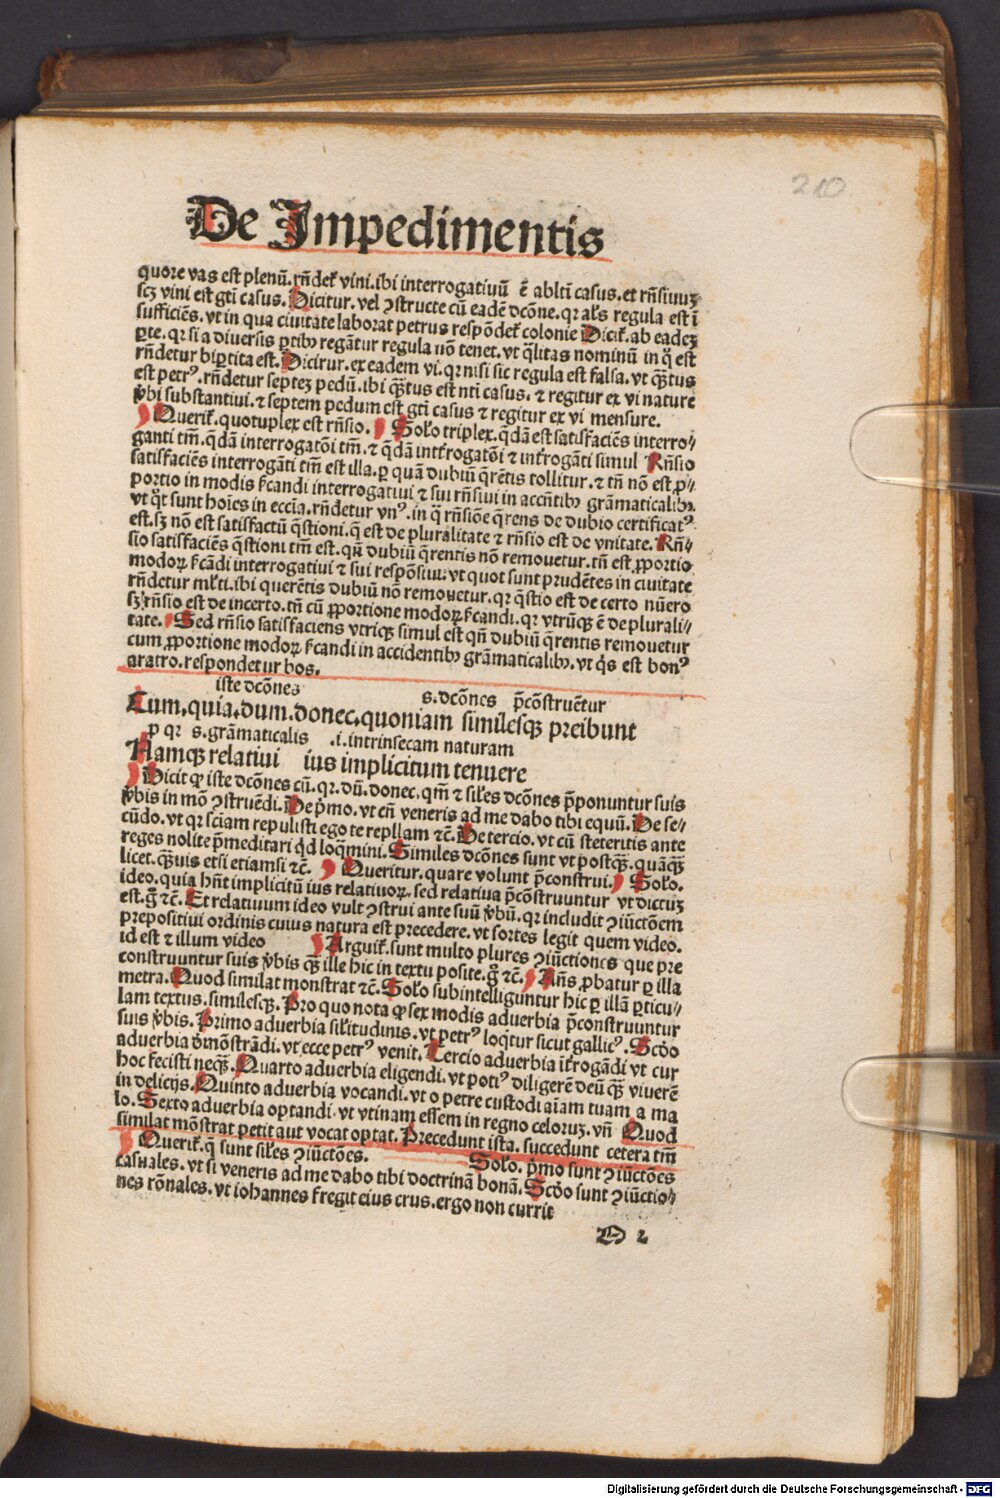 210
De Impedimentis
quore vas est plenū. rn̄det̄ vini. ibi interrogatiuū ē ablt̄i casus. et rn̄siuuꝫ
scꝫ vini est gt̄i casus. Dicitur. vel ꝯstructe cū eadē dcōne. qꝛ al̄s regula est ī
sufficiēs. vt in qua ciuitate laborat petrus respōdet̄ colonie Dicit̄. ab eadeꝫ
ꝑte. qꝛ si a diuersis ꝑtibꝫ regātur regula nō tenet. vt q̄litas nominū in q̄ est
rn̄detur biꝑtita est. Dicirur. ex eadem vi. qꝛ nisi sic regula est falsa. vt qͣ̄tus
est petrꝰ. rn̄detur septeꝫ pedū. ibi qͣ̄tus est nt̄i casus. ⁊ regitur ex vi nature
v̄bi substantiui. ⁊ septem pedum est gt̄i casus ⁊ regitur ex vi mensure.
Querit̄. quotuplex est rn̄sio. Solo triplex. q̄dā est satisfaciēs interro⸗
ganti tm̄. q̄dā interrogatōi tm̄. ⁊ q̄dā int̄rogatōi ⁊ int̄rogāti simul Rn̄sio
satisfaciēs interrogāti tm̄ est illa. ꝑ quā dubiū q̄rētis tollitur. ⁊ tn̄ nō est ꝓ⸗
portio in modis s̄candi interrogatiui ⁊ sui rn̄siui in accn̄tibꝫ grāmaticalibꝫ.
vt qͦt sunt hoīes in eccīa. rn̄detur vnꝰ. in q̄ rn̄siōe q̄rens de dubio certificatꝰ
est. sꝫ nō est satisfactū q̄stioni. q̄ est de pluralitate ⁊ rn̄sio est de vnitate. Rn̄⸗
sio satisfaciēs q̄stioni tm̄ est. qn̄ dubiū q̄rentis nō remouetur. tn̄ est ꝓportio
modoꝝ s̄cādi interrogatiui ⁊ sui respōsiui. vt quot sunt prudētes in ciuitate
rn̄detur ml̄ti. ibi querētis dubiū nō remouetur. qꝛ q̄stio est de certo nūero
sꝫ rn̄sio est de incerto. tn̄ cū ꝓportione modoꝝ s̄candi. qꝛ vtrūqꝫ ē de plurali⸗
tate. Sed rn̄sio satisfaciens vtriqꝫ simul est qn̄ dubiū q̄rentis remouetur
cum ꝓportione modoꝝ s̄candi in accidentibꝫ grāmaticalibꝫ. vt q̇s est bonꝰ
aratro. respondetur bos.
iste dcōnes s. dcōnes p̄cōstruētur
Cum. quia. dum. donec. quoniam similesqꝫ preibunt
ꝑ qꝛ s. grāmaticalis .i. intrinsecam naturam
Namqꝫ relatiui ius implicitum tenuere
Dicit ꝙ iste dcōnes cū. qꝛ. dū. donec. qm̄ ⁊ sil̄es dcōnes p̄ponuntur suis
v̄bis in mō ꝯstruēdi. De p̄mo. vt cū veneris ad me dabo tibi equū. De se⸗
cūdo. vt qꝛ sciam repulisti ego te repllam ⁊c̄. De tercio. vt cū steteritis ante
reges nolite p̄meditari qd̄ loq̄mini. Similes dcōnes sunt vt postqͣ̄. quāqͣ̄
licet. qͣ̄uis etsi etiamsi ⁊c̄. Queritur. quare volunt p̄construi. Solo.
ideo. quia hn̄t implicitū ius relatiuoꝝ. sed relatiua p̄cōstruuntur vt dictuꝫ
est. gͦ ⁊c̄. Et relatiuum ideo vult ꝯstrui ante suū v̄bū. qꝛ includit ꝯiūctōem
prepositiui ordinis cuius natura est precedere. vt sortes legit quem video.
id est ⁊ illum video Arguit̄. sunt multo plures ꝯiūctiones que pre
construuntur suis v̄bis qͣ̄ ille hic in textu posite. gͦ ⁊c̄. Ān̄s ꝓbatur ꝑ illa
metra. Quod similat monstrat ⁊c̄. Solo subintelliguntur hic ꝑ illā ꝑticu⸗
lam textus. similesqꝫ. Pro quo nota ꝙ sex modis aduerbia p̄construuntur
suis v̄bis. Primo aduerbia sil̄itudinis. vt petrꝰ loq̄tur sicut gallicꝰ. Scd̄o
aduerbia d̄mōstrādi. vt ecce petrꝰ venit. Tercio aduerbia īt̄rogādi vt cur
hoc fecisti neqͣ̄. Quarto aduerbia eligendi. vt potiꝰ diligerē deū qͣ̄ viuerē
in delicijs. Quinto aduerbia vocandi. vt o petre custodi aīam tuam a ma
lo. Sexto aduerbia optandi. vt vtinam essem in regno celoruꝫ. vn̄ Quod
similat mōstrat petit aut vocat optat. Precedunt ista. succedunt cetera tm̄
Querit̄. q̄ sunt sil̄es ꝯiūctōes. Solo. p̄mo sunt ꝯiūctōes
casuales. vt si veneris ad me dabo tibi doctrinā bonā. Scd̄o sunt ꝯiūctio⸗
nes rōnales. vt iohannes fregit eius crus. ergo non currit
O 2
Digitalisierung gefördert durch die Deutsche Forschungsgemeinschaft - DFG